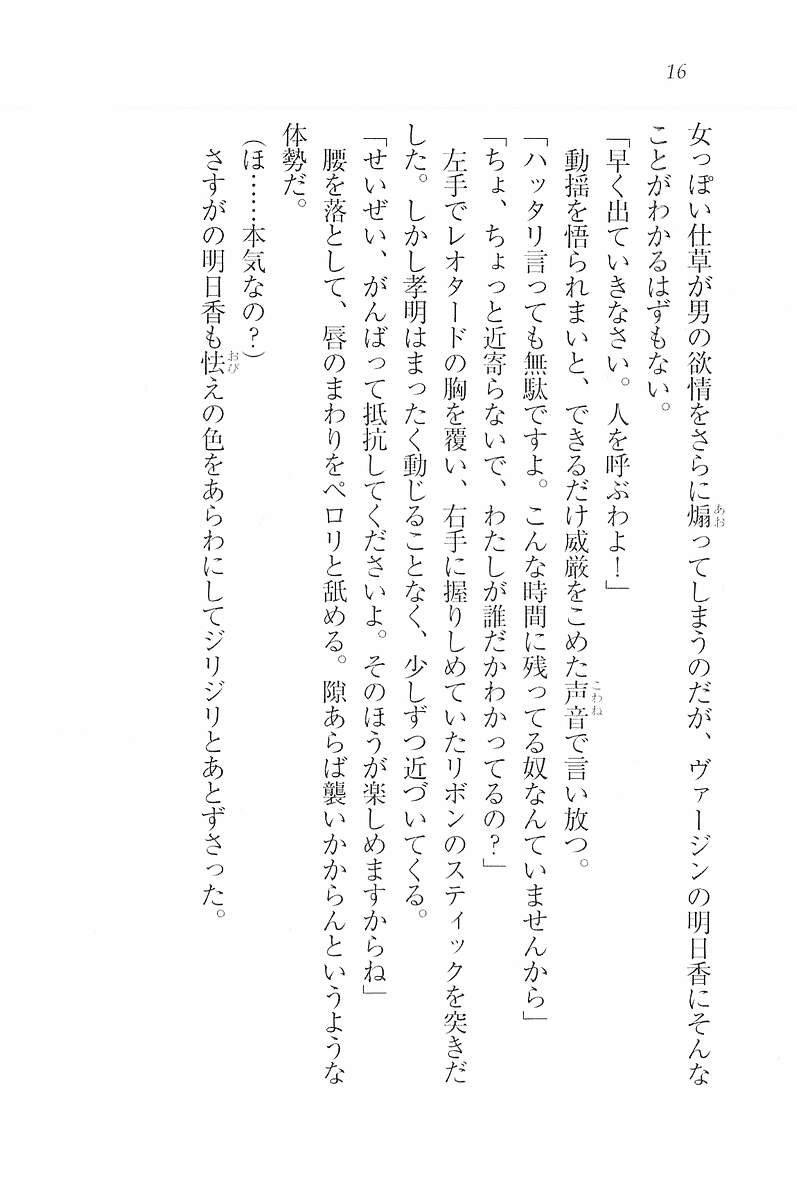 16
女っぽい仕草が男の欲情をさらに煽ってしまうのだが、ヴァージンの明日香にそんな
あお
ことがわかるはずもない。
「早く出ていきなさい。人を呼ぶわよ！」
動揺を悟られまいと、できるだけ威厳をこめた声音で言い放つ。
こわね
「ハッタリ言っても無駄ですよ。こんな時間に残ってる奴なんていませんから」
「ちょ、ちょっと近寄らないで、わたしが誰だかわかってるの？」
左手でレオタードの胸を覆い、右手に握りしめていたリボンのスティックを突きだ
した。しかし孝明はまったく動じることなく、少しずつ近づいてくる。
「せいぜい、がんばって抵抗してくださいよ。そのほうが楽しめますからね」
腰を落として、唇のまわりをペロリと舐める。隙あらば襲いかからんというような
体勢だ。
（ほ……本気なの？）
さすがの明日香も怯えの色をあらわにしてジリジリとあとずさった。
おび